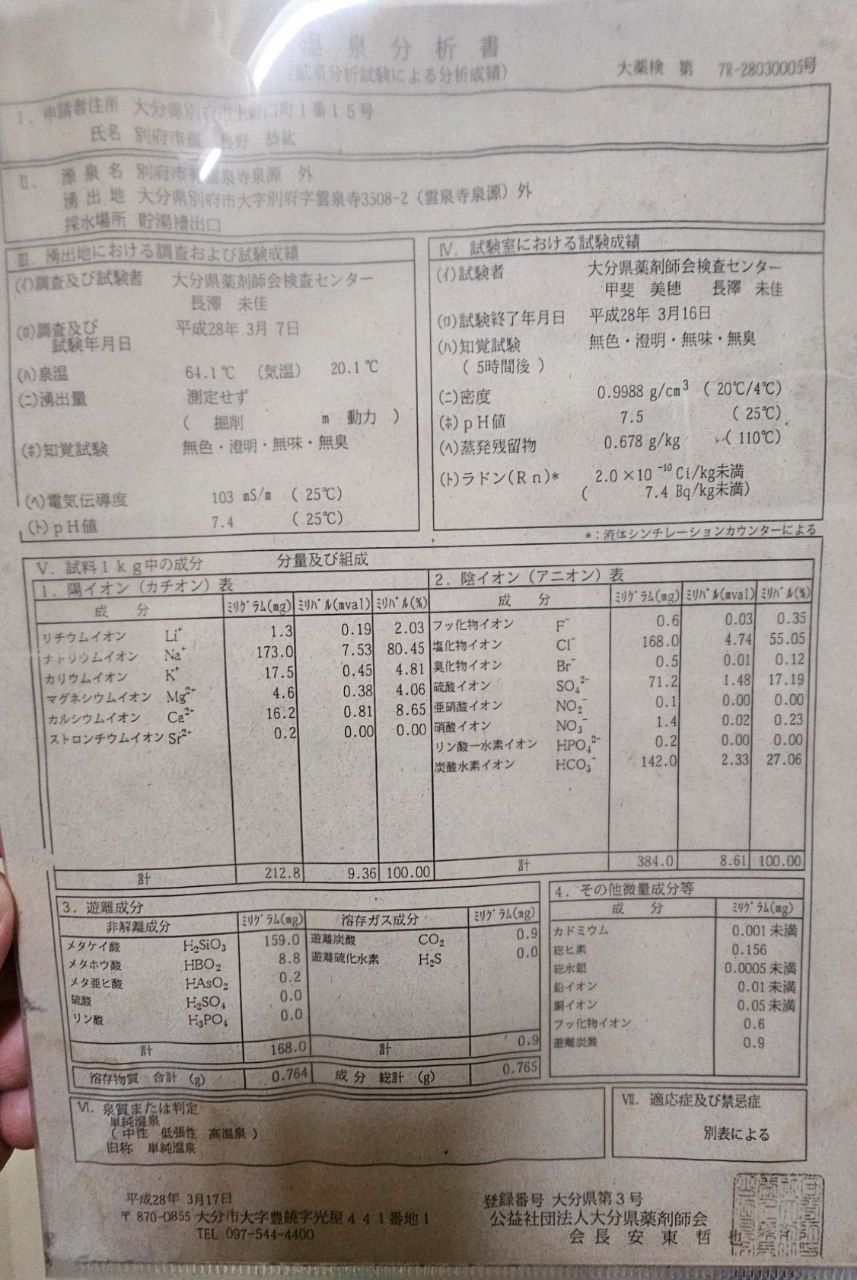 温泉分析書
(鉱泉分析試験による分析成績)
大薬検 第 7R-28030005号
Ⅰ. 申請者住所 大分県別府市上野口町1番15号
氏名 別府市長 長野 恭紘
Ⅱ. 源泉名 別府市 雲泉寺泉源 外
湧出地 大分県別府市大字別府字雲泉寺3508-2 (雲泉寺泉源) 外
採水場所 貯湯槽出口
Ⅲ. 湧出地における調査および試験成績
(イ)調査及び試験者 大分県薬剤師会検査センター
長澤 未佳
(ロ)調査及び
試験年月日 平成28年 3月 7日
(ハ)泉温 64.1℃ (気温) 20.1℃
(ニ)湧出量 測定せず
( 掘削 m 動力 )
(ホ)知覚試験 無色・澄明・無味・無臭
(ヘ)電気伝導度 103 mS/m (25℃)
(ト)pH値 7.4 (25℃)
Ⅳ. 試験室における試験成績
(イ)試験者 大分県薬剤師会検査センター
甲斐 美穂 長澤 未佳
(ロ)試験終了年月日 平成28年 3月16日
(ハ)知覚試験 無色・澄明・無味・無臭
(5時間後)
(ニ)密度 0.9988 g/cm³ (20℃/4℃)
(ホ)pH値 7.5 (25℃)
(ヘ)蒸発残留物 0.678 g/kg (110℃)
(ト)ラドン(Rn)* 2.0×10⁻¹⁰ Ci/kg未満
( 7.4 Bq/kg未満)
*:液体シンチレーションカウンターによる
Ⅴ. 試料1kg中の成分 分量及び組成
1. 陽イオン(カチオン)表
成 分 ミリグラム(mg) ミリバル(mval) ミリバル(%)
リチウムイオン Li⁺ 1.3 0.19 2.03
ナトリウムイオン Na⁺ 173.0 7.53 80.45
カリウムイオン K⁺ 17.5 0.45 4.81
マグネシウムイオン Mg²⁺ 4.6 0.38 4.06
カルシウムイオン Ca²⁺ 16.2 0.81 8.65
ストロンチウムイオン Sr²⁺ 0.2 0.00 0.00
計 212.8 9.36 100.00
2. 陰イオン(アニオン)表
成 分 ミリグラム(mg) ミリバル(mval) ミリバル(%)
フッ化物イオン F⁻ 0.6 0.03 0.35
塩化物イオン Cl⁻ 168.0 4.74 55.05
臭化物イオン Br⁻ 0.5 0.01 0.12
硫酸イオン SO₄²⁻ 71.2 1.48 17.19
亜硝酸イオン NO₂⁻ 0.1 0.00 0.00
硝酸イオン NO₃⁻ 1.4 0.02 0.23
リン酸一水素イオン HPO₄²⁻ 0.2 0.00 0.00
炭酸水素イオン HCO₃⁻ 142.0 2.33 27.06
計 384.0 8.61 100.00
3. 遊離成分
非解離成分 ミリグラム(mg) 溶存ガス成分 ミリグラム(mg)
メタケイ酸 H₂SiO₃ 159.0 遊離炭酸 CO₂ 0.9
メタホウ酸 HBO₂ 8.8 遊離硫化水素 H₂S 0.0
メタ亜ヒ酸 HAsO₂ 0.2
硫酸 H₂SO₄ 0.0
リン酸 H₃PO₄ 0.0
計 168.0 計 0.9
溶存物質 合計 (g) 0.764 成分 総計 (g) 0.765
4. その他微量成分等
成 分 ミリグラム(mg)
カドミウム 0.001 未満
総ヒ素 0.156
総水銀 0.0005 未満
鉛イオン 0.01 未満
銅イオン 0.05 未満
フッ化物イオン 0.6
遊離炭酸 0.9
Ⅵ. 泉質または判定
単純温泉
(中性 低張性 高温泉)
旧称 単純温泉
Ⅶ. 適応症及び禁忌症
別表による
平成28年 3月17日
〒870-0855 大分市大字豊饒字光屋441番地1
TEL 097-544-4400
登録番号 大分県第3号
公益社団法人大分県薬剤師会
会長 安東哲也